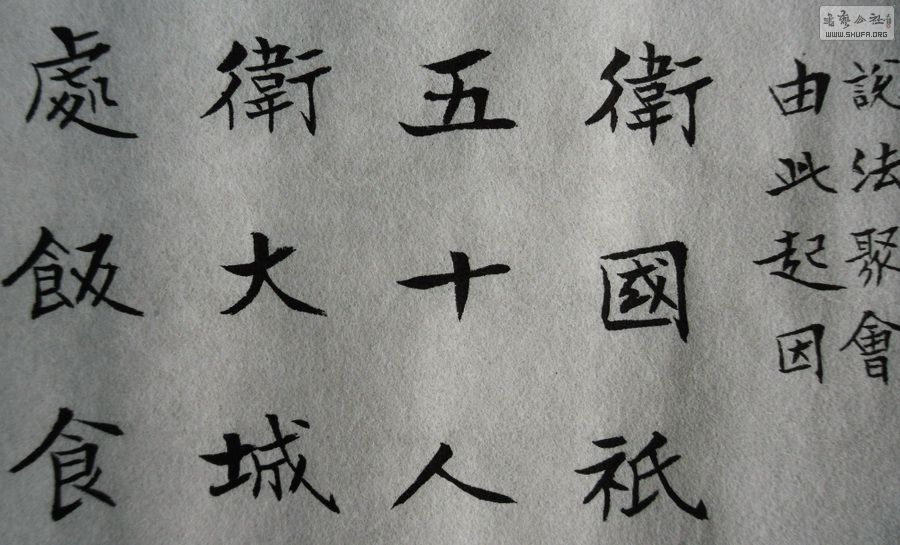 說法聚會
由此起因
衛國祇
五十人
衛大城
處飯食
書藝公社
WWW.SHUFA.ORG